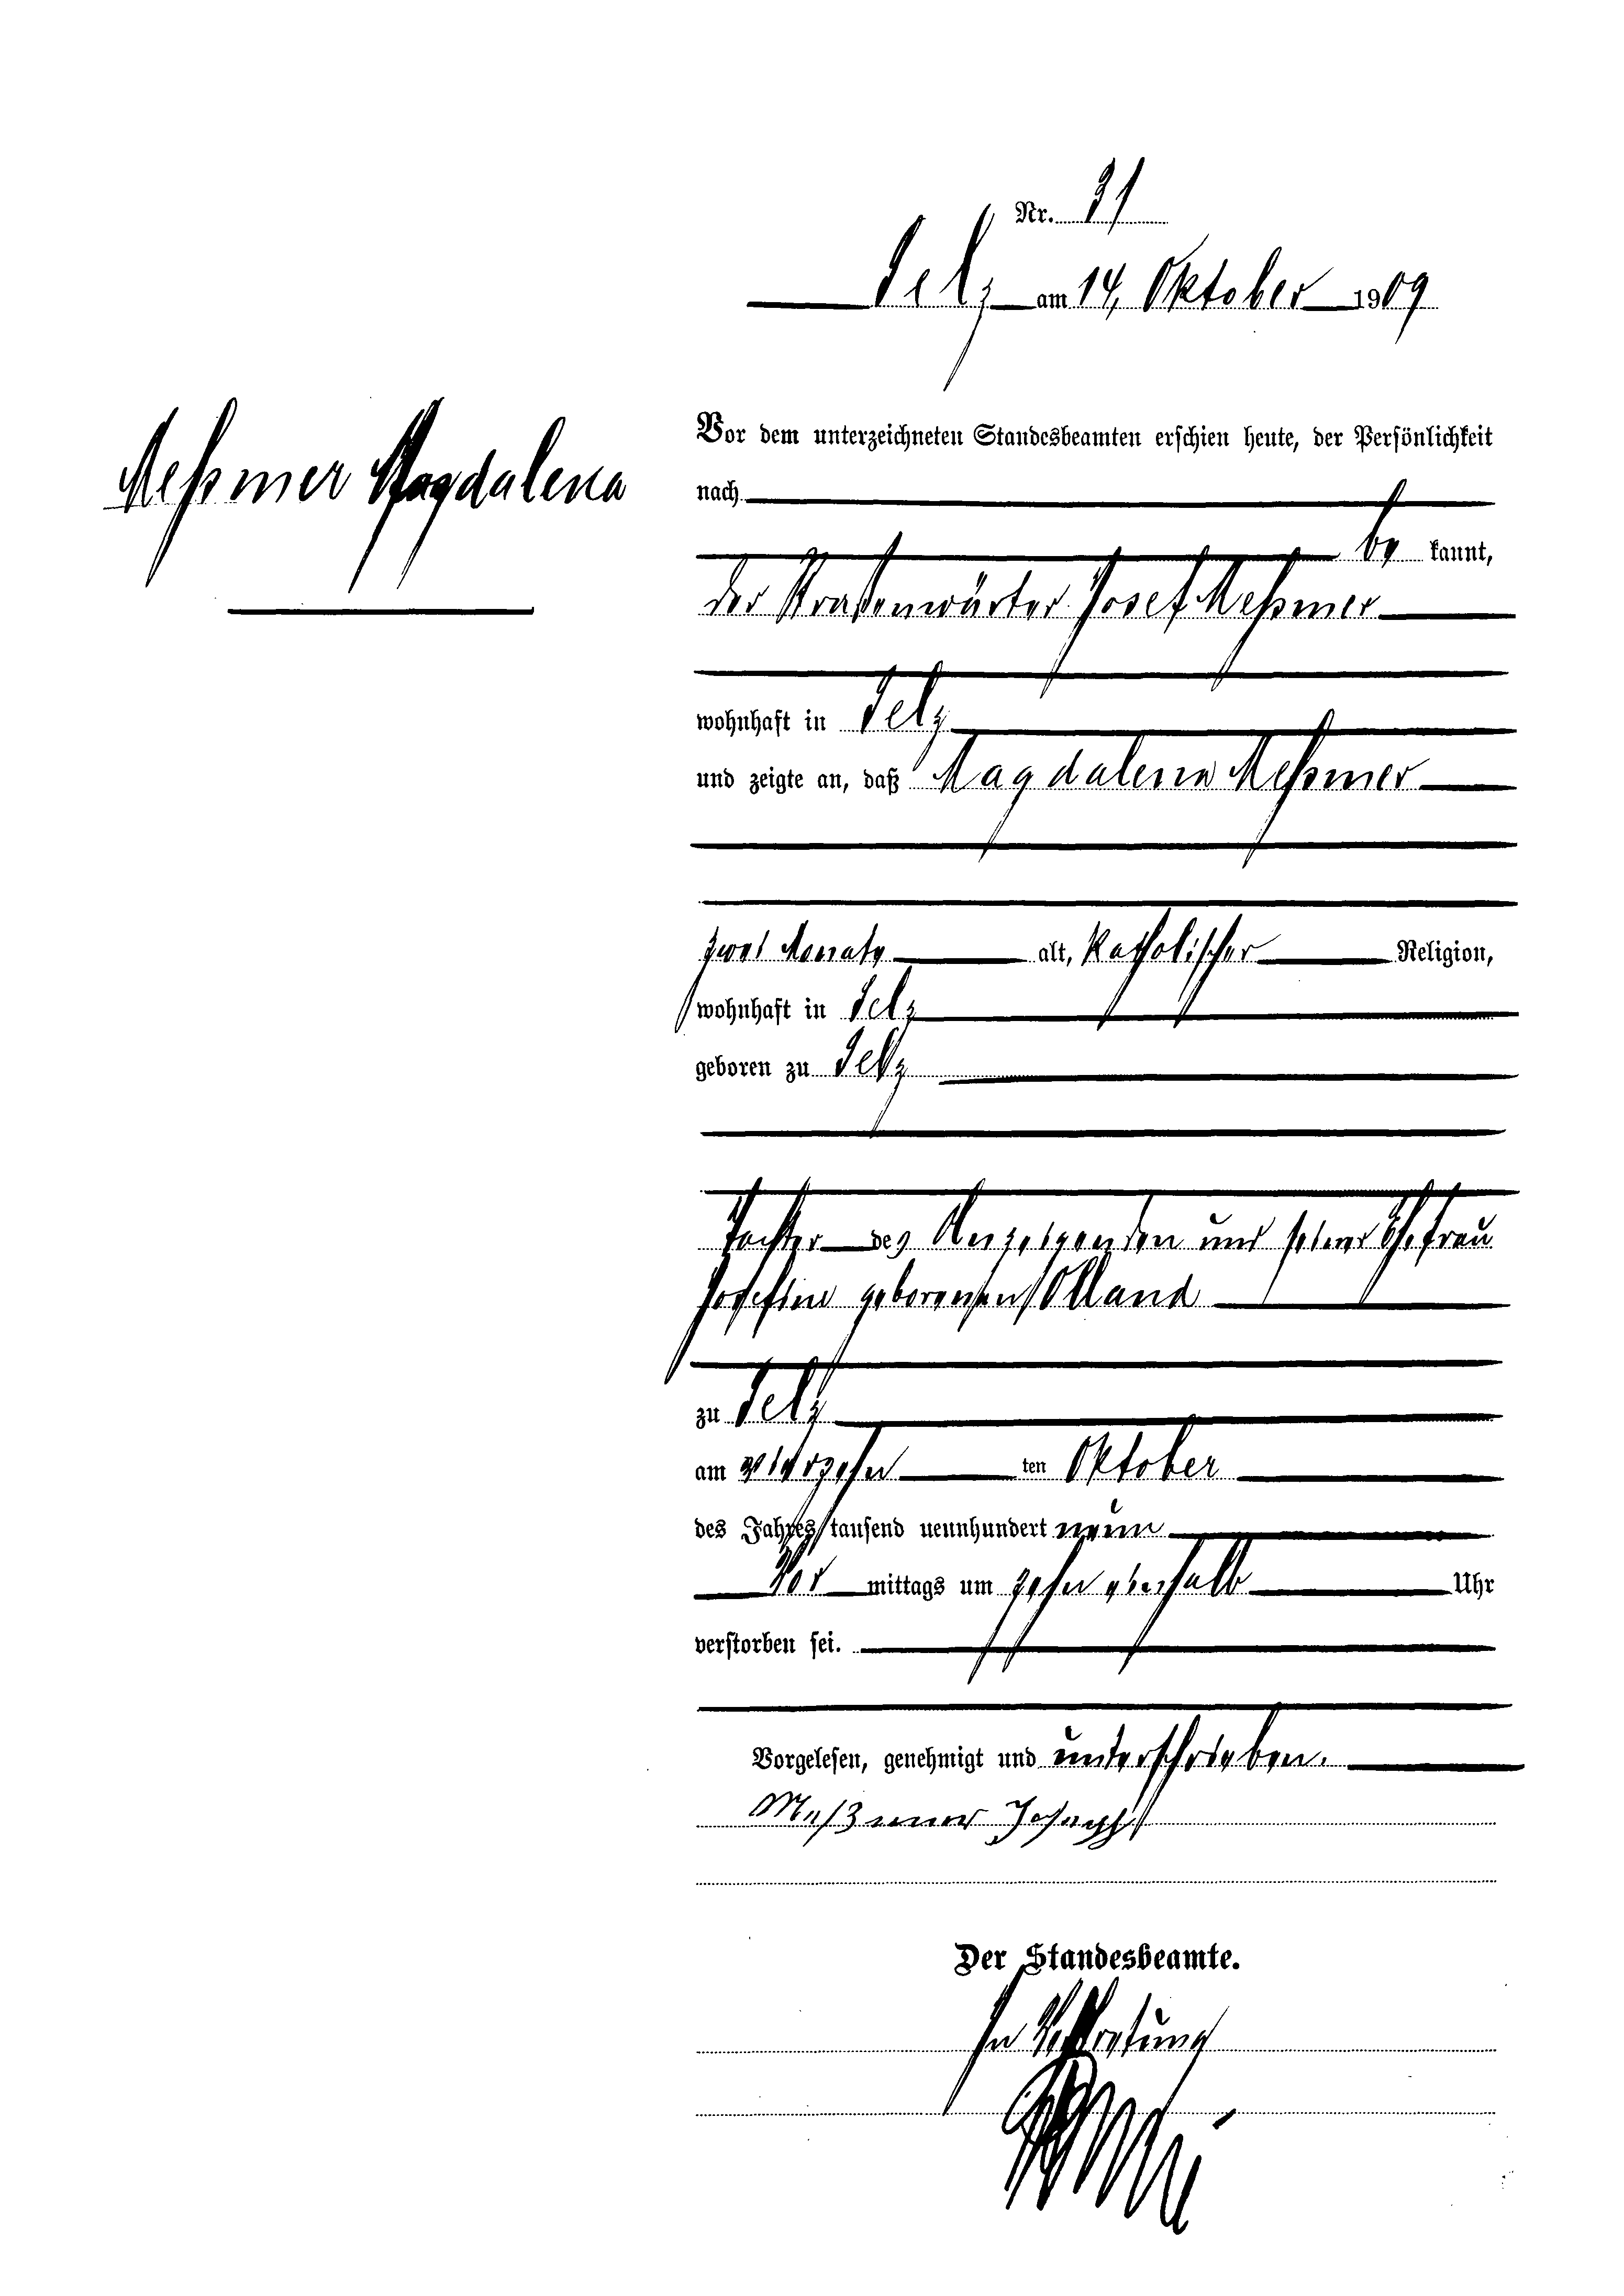 Nr. 31
Selz am 14. Oktober 1909
Meßmer Magdalena
Vor dem unterzeichneten Standesbeamten erschien heute, der Persönlichkeit
nach
be kannt,
der Straßenwärter Josef Meßmer
wohnhaft in Selz
und zeigte an, daß Magdalena Meßmer
zwei Monate alt, katholischer Religion,
wohnhaft in Selz
geboren zu Selz
Tochter des Anzeigenden und seiner Ehefrau
Josefine geborenen Olland
zu Selz
am vierzehn ten Oktober
des Jahres tausend neunhundert neun
Vor mittags um zehn einhalb Uhr
verstorben sei.
Vorgelesen, genehmigt und unterschrieben.
Meßmer Joseph
Der Standesbeamte.
In Vertretung